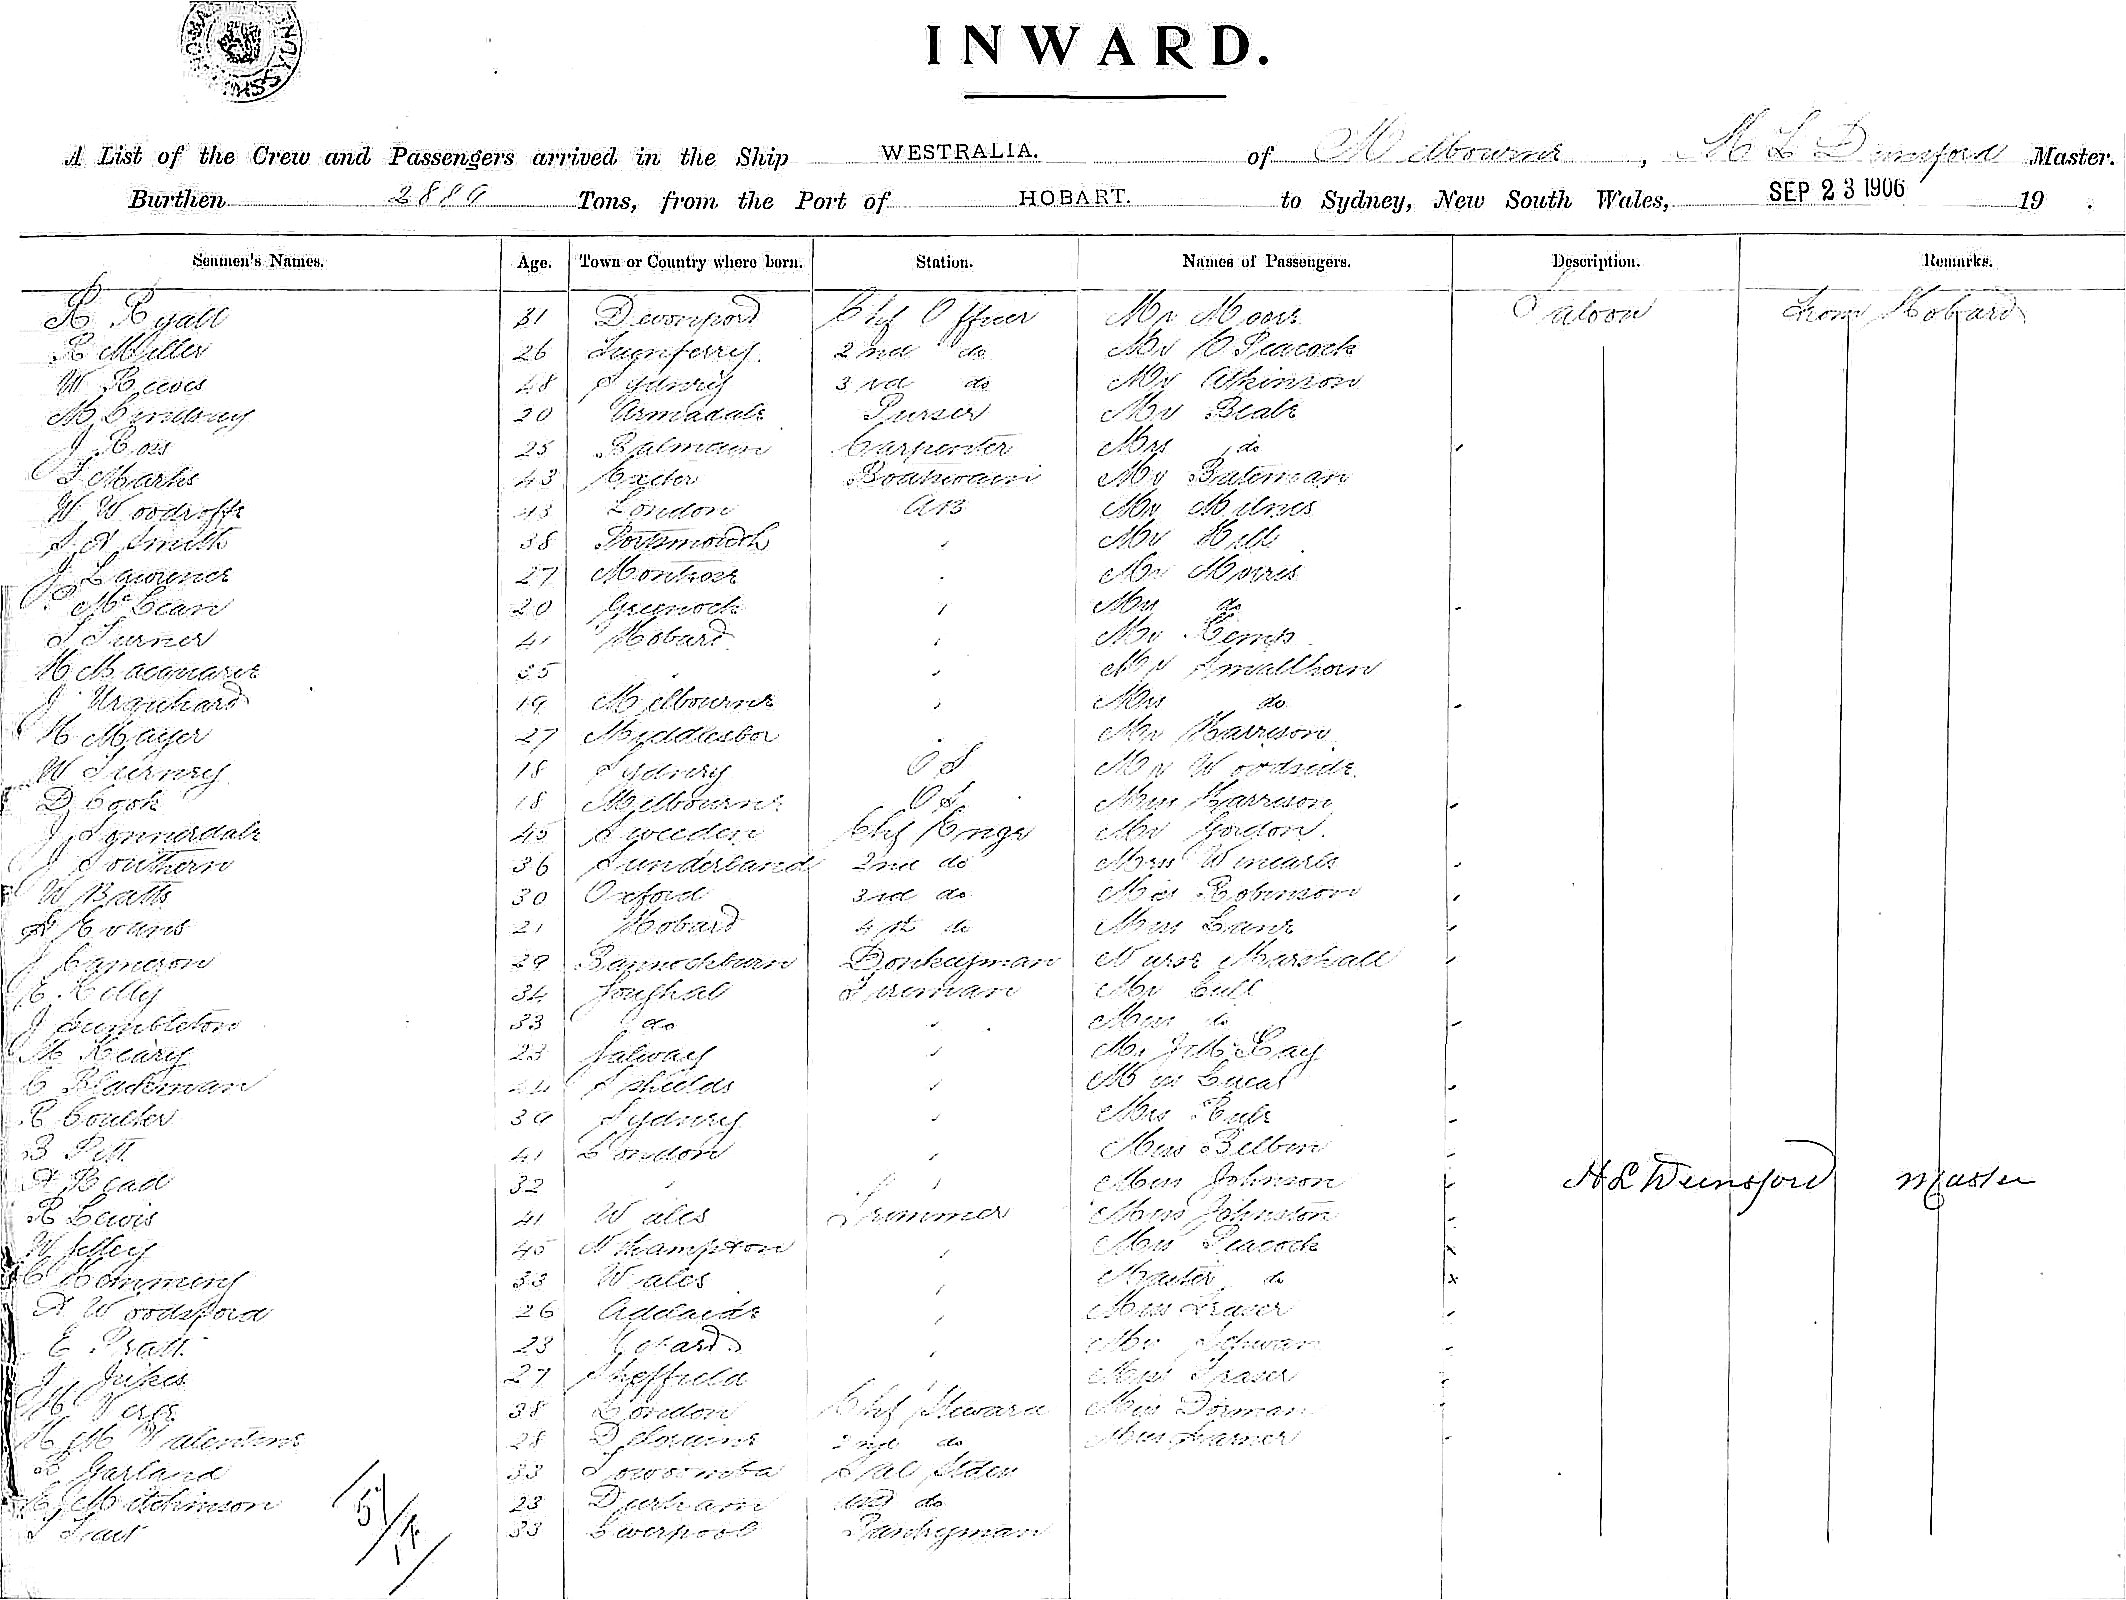 INWARD.
A List of the Crew and Passengers arrived in the Ship WESTRALIA. of Melbourne, Master.
Burthen 2889 Tons, from the Port of HOBART. to Sydney, New South Wales, SEP 23 1906 19 .
Seamen's Names. Age. Town or Country where born. Station. Names of Passengers. Description. Remarks.
R Ryall 31 Devonport Chf Officer Mr Moore Saloon from Hobard
R Miller 26 2nd do Mr C Peacock
W Reeves 48 Sydney 3rd do Mr Atkinson
M Lindsay 20 Armadale Purser Mr Beale
J Ross 25 Balmain Carpenter Mrs do
S Marks 43 Exeter Boatswain Mr Bateman
W Woodroffe 43 London AB Mr Milnes
S A Smith 38 Portsmouth Mr Hill
J Lawrence 27 Montrose Mr Morris
P McLean 20 Greenock Mrs do
T Turner 41 Hobard Mr Kemp
H Macquarie 35 Mr Smallhorn
J Urquhard 19 Melbourne Mrs do
H Mayer 27 Middlesbor Mr Harrison
W Turney 18 Sydney OS Mr Woodside
D Cook 18 Melbourne OS. Miss Harrison
J Sonnerdale 45 Sweeden Chf Engr Mr Gordon.
J Southern 36 Sunderland 2nd do Miss Winearls
W Batts 30 Oxford 3rd do Miss Robinson
A Evans 21 Hobard 4th do Miss Lane
J Cameron 29 Bannockburn Donkeyman Nurse Marshall
E Kelly 34 Youghal Fireman Mr Cull
J Tumbleton 33 do Miss do
M Keary 23 Galway Mr J McKay
C Blackman 24 S Shields Miss Lucas
R Coulter 39 Sydney Mrs
B Pitt 41 London Miss Belbin
A Read 32 Miss Johnson HL Dunsford Master
R Lewis 41 Wales Trimmer Miss Johnston
W Jelley 45 Nthampton Mrs Peacock
C Hemmens 33 Wales Master do
A Woodsford 26 Adelaide Miss Fraser
E Pratt 23 Gobard Mr Schwan
J Jukes 27 Sheffield Miss Fraser
H Vere 38 London Chf Steward Miss Dorman
H M Valentine 28 Deloraine 2nd do Miss Garner
R Garland 33 Towoomba Sal Stden
E J Mitchinson 23 Durham and do
33 Liverpool Pantryman
51/17